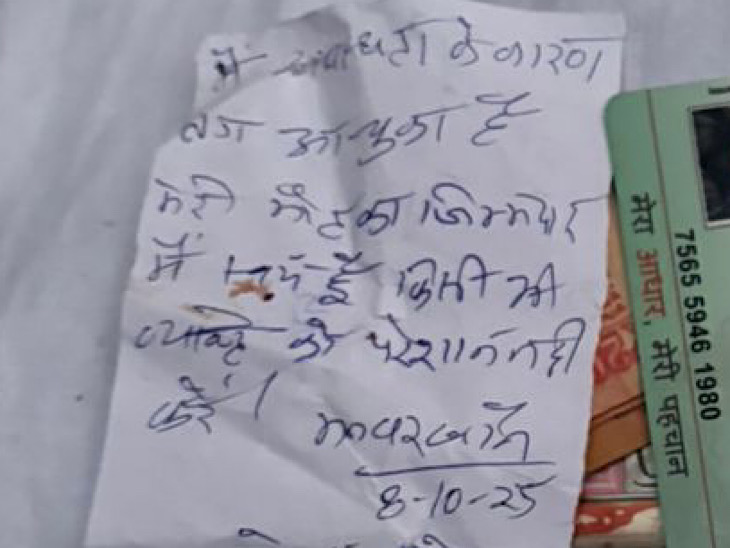 मैं के कारण
तंग आ चुका हूँ
मेरी मौत का
मैं स्वयं हूँ किसी भी
व्यक्ति को परेशान नहीं
करें।
8-10-25
7565 5946 1980
मेरा आधार, मेरी पहचान